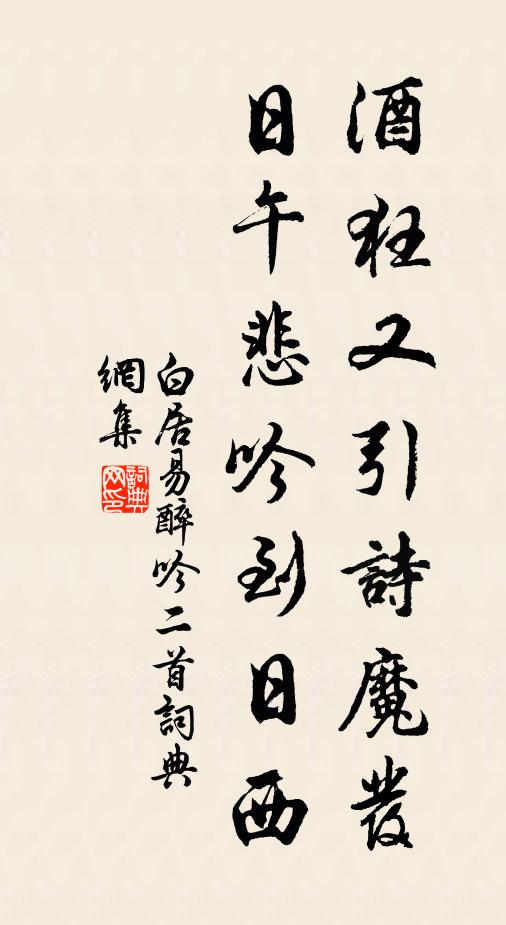 酒狂又引詩魔發
日午悲吟到日西
白居易醉吟二首詞典
網集
詞典網印